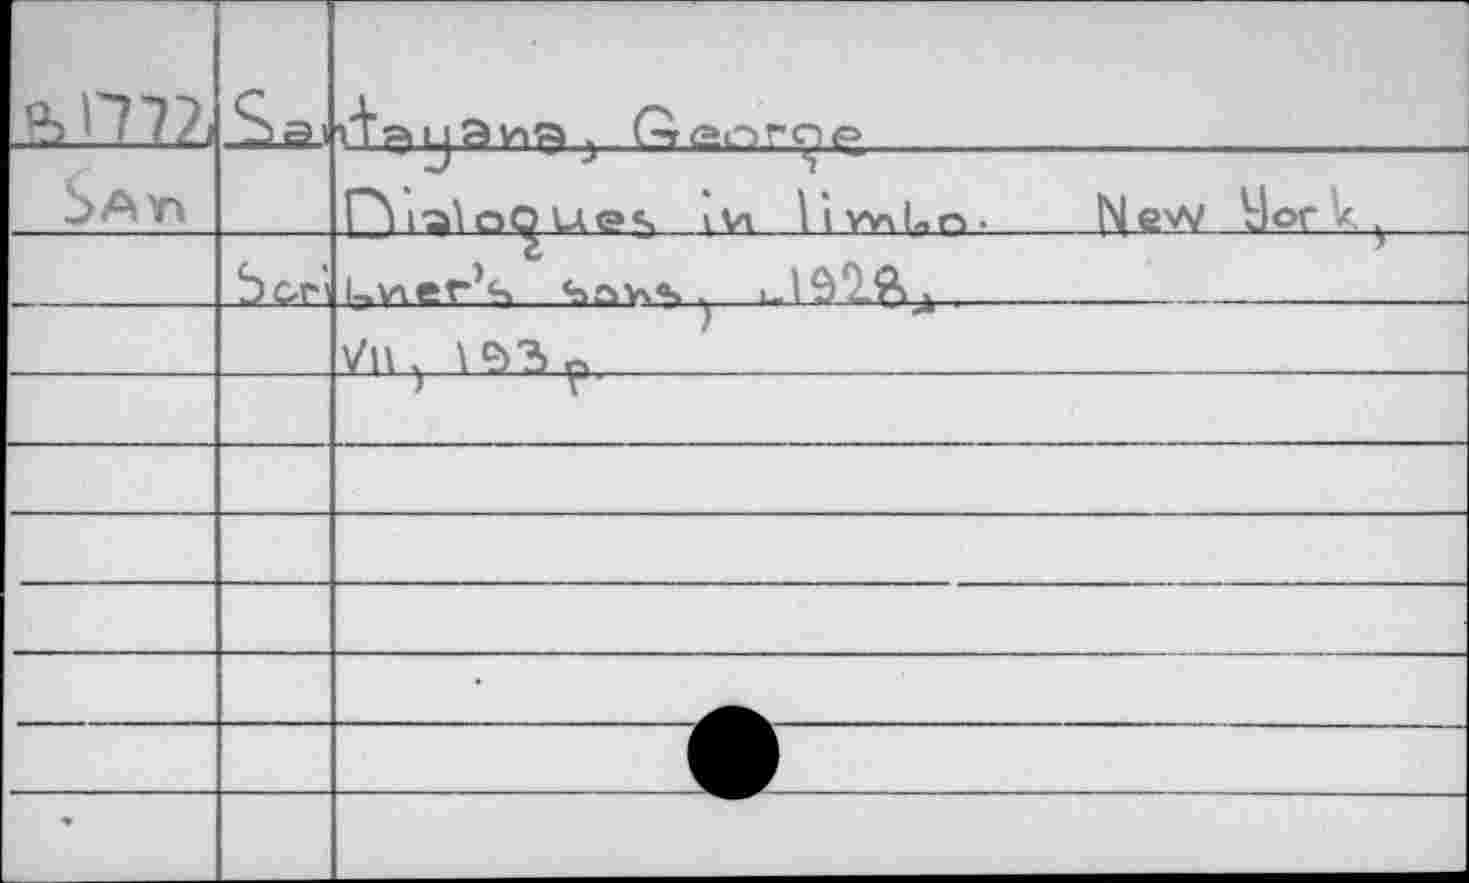 B1772 Santayana, George
San Dialogues in limbo. New York,
Scribner's sons, c1928,
VII, 193 p.